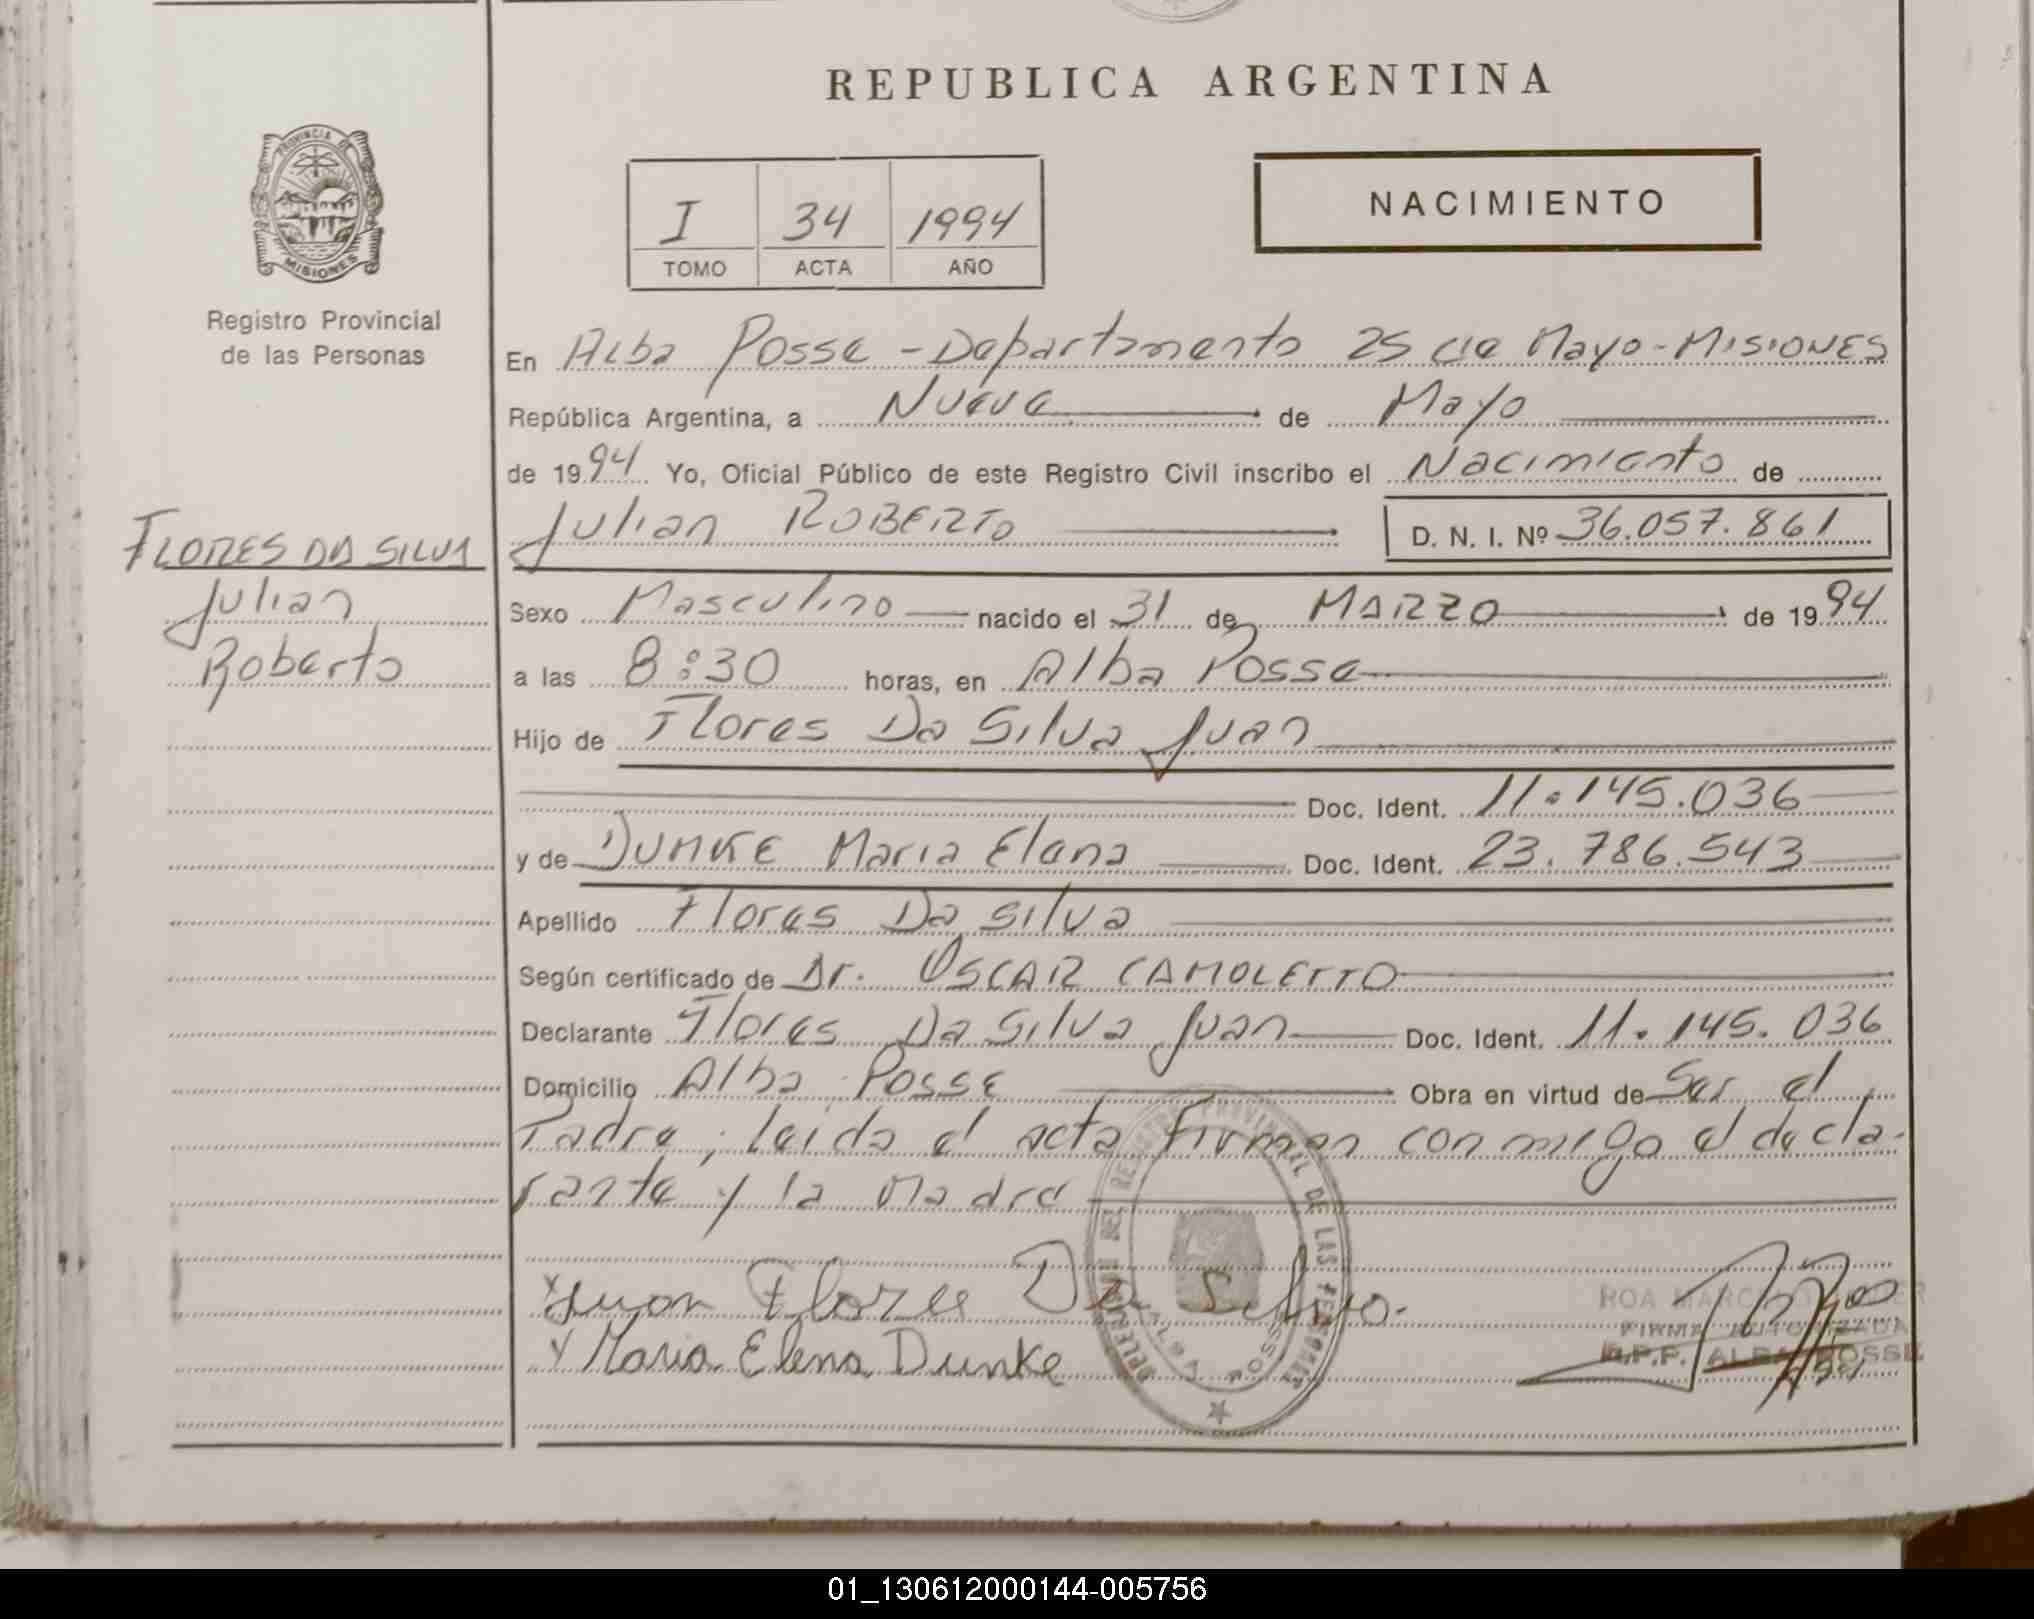 REPUBLICA ARGENTINA
PROVINCIA DE
MISIONES
Registro Provincial
de las Personas
I 34 1994
TOMO ACTA AÑO
NACIMIENTO
En Alba Posse - Departamento 25 de Mayo - MISIONES
República Argentina, a Nueve de Mayo
de 1994 Yo, Oficial Público de este Registro Civil inscribo el Nacimiento de
Julian ROBERTO D. N. I. Nº 36.057.861
FLORES DA SILVA
Julian
Roberto
Sexo Masculino nacido el 31 de MARZO de 1994
a las 8:30 horas, en Alba Posse
Hijo de Flores Da Silva Juan
Doc. Ident. 11.145.036
y de DUNKE Maria Elena Doc. Ident. 23.786.543
Apellido Flores Da Silva
Según certificado de Dr. OSCAR CAMOLETTO
Declarante Flores Da Silva Juan Doc. Ident. 11.145.036
Domicilio Alba Posse Obra en virtud de Ser el
Padre; leida el acta firman conmigo el decla-
rante y la Madre
Juan Flores Da Silva.
Maria Elena Dunke
DEL REGISTRO PROVINCIAL DE LAS PERSONAS
ALBA POSSE
ROA
FIRMA AUTORIZADA
R.P.P. ALBA POSSE
01_130612000144-005756